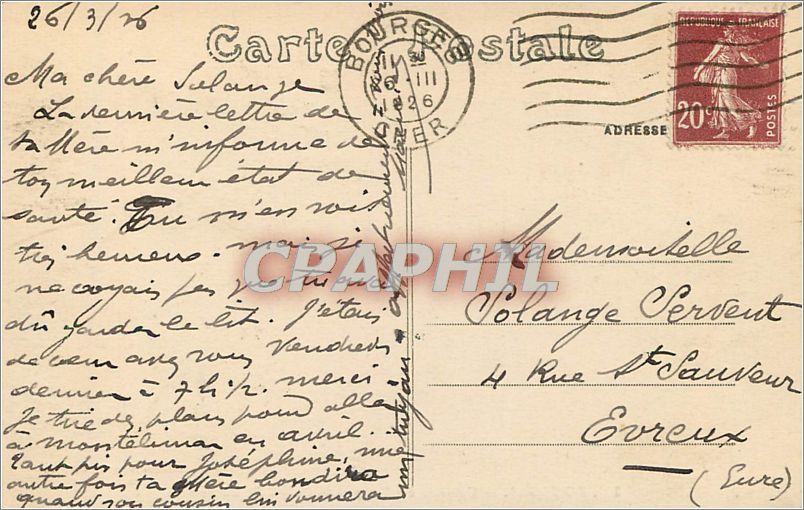 26/3/26
Carte Postale
BOURGES
CHER
26
RÉPUBLIQUE FRANÇAISE
20c
POSTES
ADRESSE
Ma chère Solange
La dernière lettre de
ta Mère m'informe de
ton meilleur état de
santé. Tu m'en vois
très heureux. mais je
ne croyais pas que tu avais
dû garder le lit. J'étais
de cœur avec vous Vendredi
dernier à 7h ½. merci
Je tire des plans pour aller
à montélimar en avril.
Tant pis pour Joséphine, une
autre fois ta Mère
quand son cousin lui donnera
CPAPHIL
Mademoiselle
Solange Servent
4 Rue St Sauveur
Evreux
(Eure)